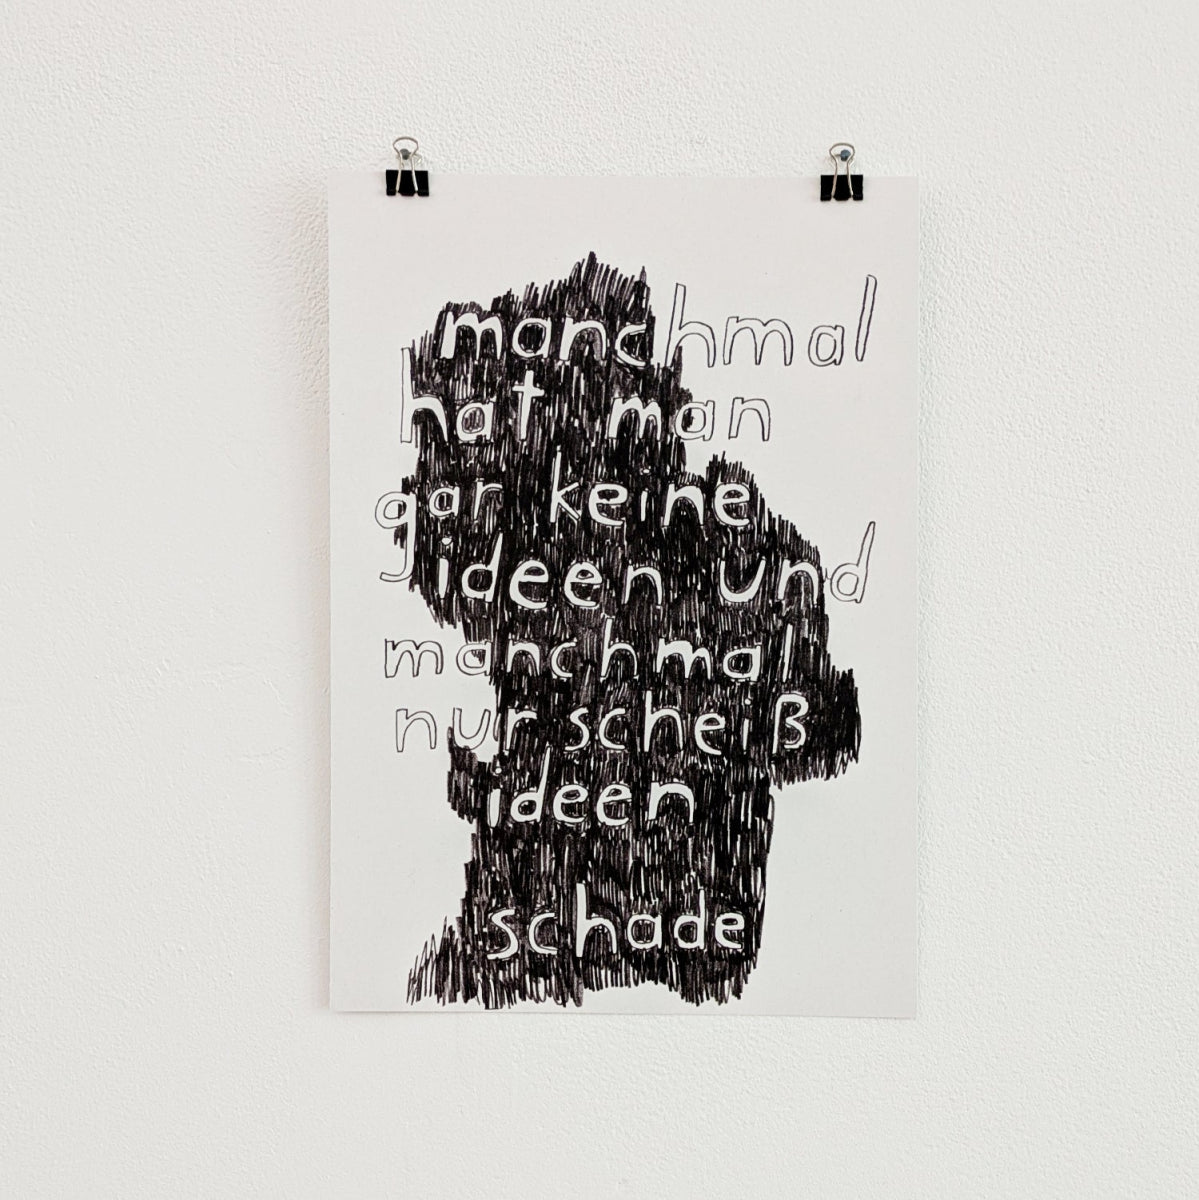 manchmal
hat man
gar keine
ideen und
manchmal
nur scheiß
ideen
schade